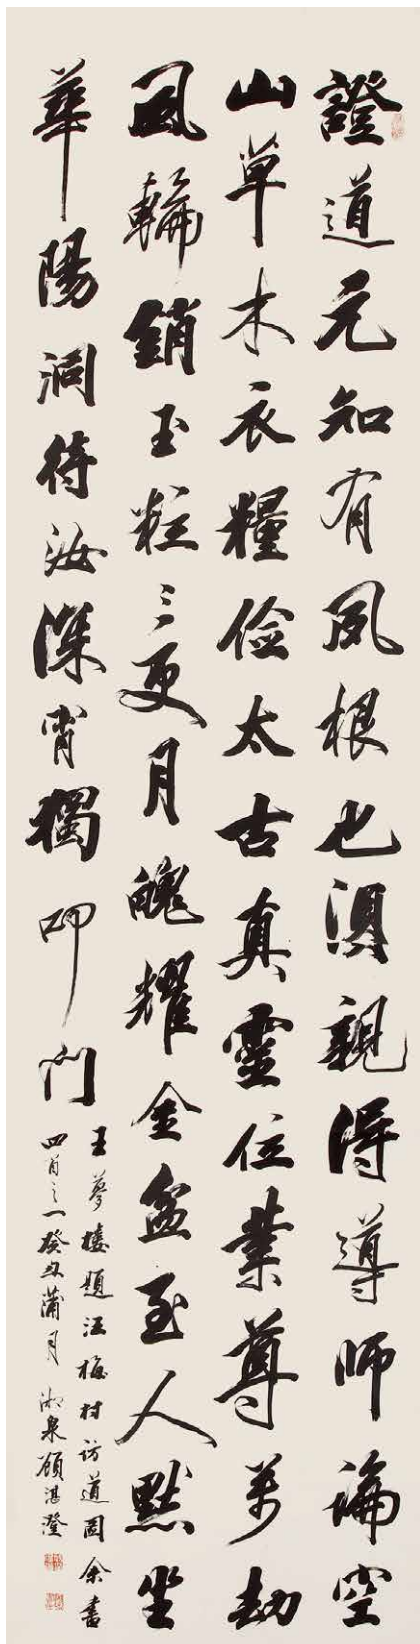 證道元知有夙根也須親得導師論空
山草木衣糧儉太古真靈位業尊萬劫
風輪銷玉粒三更月魄耀金盆至人默坐
華陽洞待汝深宵獨叩門
王夢樓題汪梅村訪道圖余書
四首之一癸丑蒲月 湘泉顧湛澄